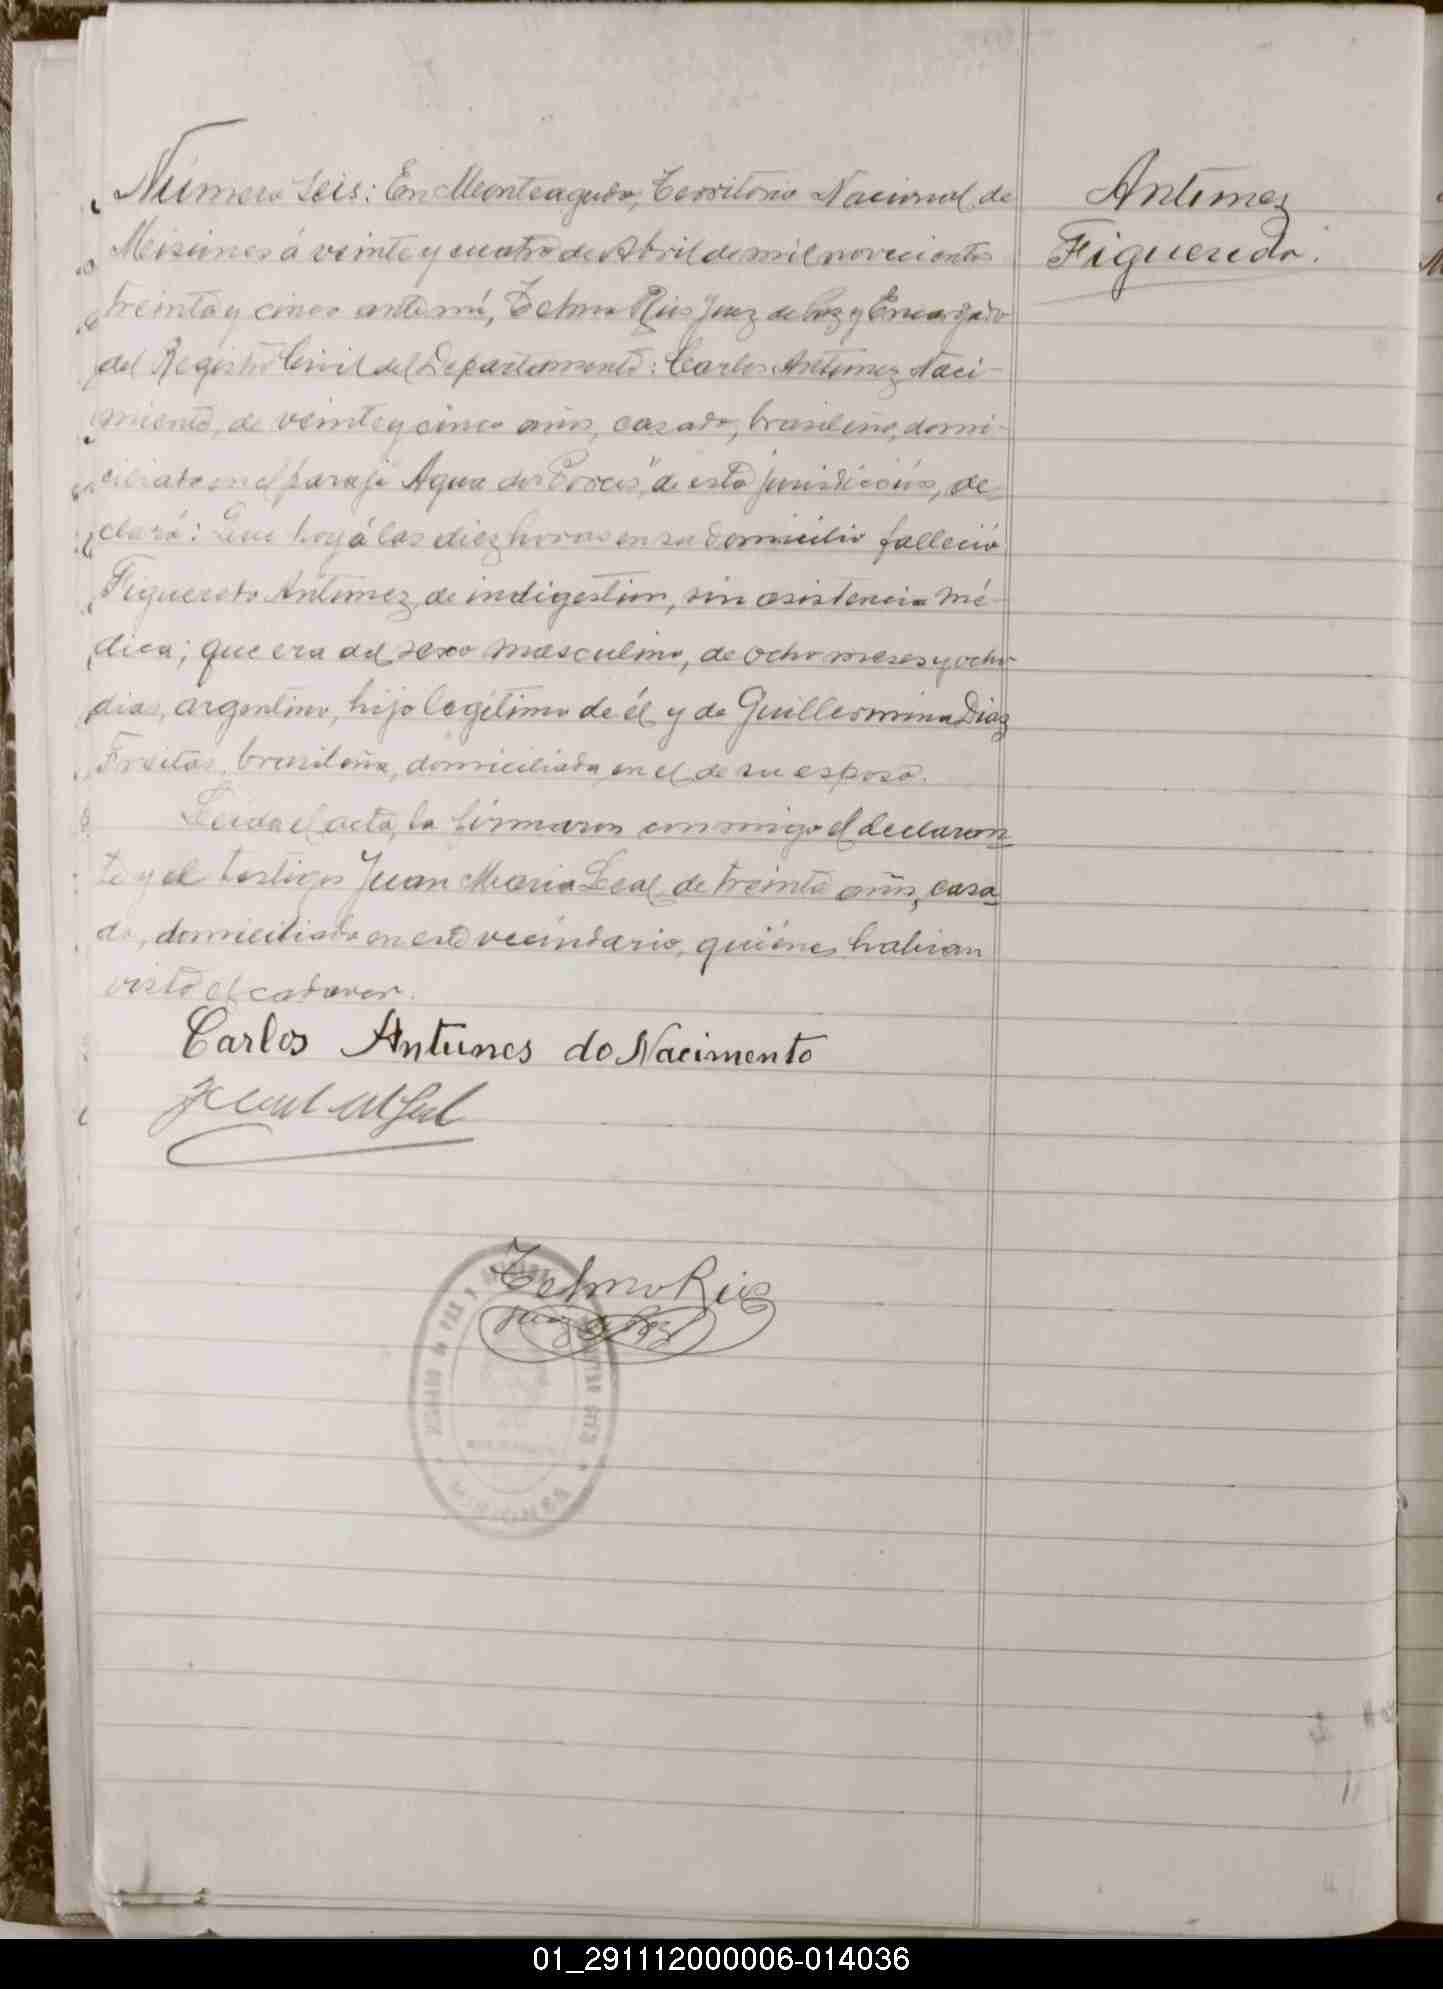 Número Seis: En Monteagudo, Territorio Nacional de
Misiones á veinte y cuatro de Abril de mil novecientos
treinta y cinco ante mí, Telmo Reis Juez de Paz y Encargado
del Registro Civil del Departamento: Carlos Antunez Naci-
miento, de veinte y cinco años, casado, brasileño, domi-
ciliado en el paraje Agua dos de esta jurisdicción, de-
claró: Que hoy á las diez horas en su domicilio falleció
Figueredo Antunez de indigestion, sin asistencia mé-
dica; que era del sexo masculino, de ocho meses y ocho
dias, argentino, hijo legítimo de él y de Guillermina Diaz
Freitas, brasileña, domiciliada en el de su esposo.
Leida el acta, la firmaron conmigo el declaran-
te y el testigo Juan Maria Leal de treinta años, casa-
do, domiciliado en este vecindario, quiénes habian
visto el cadaver.
Antunez
Figueredo.
Carlos Antunes do Nacimento
Telmo Reis
Juez de Paz
JUZGADO DE PAZ Y
MISIONES
01_291112000006-014036